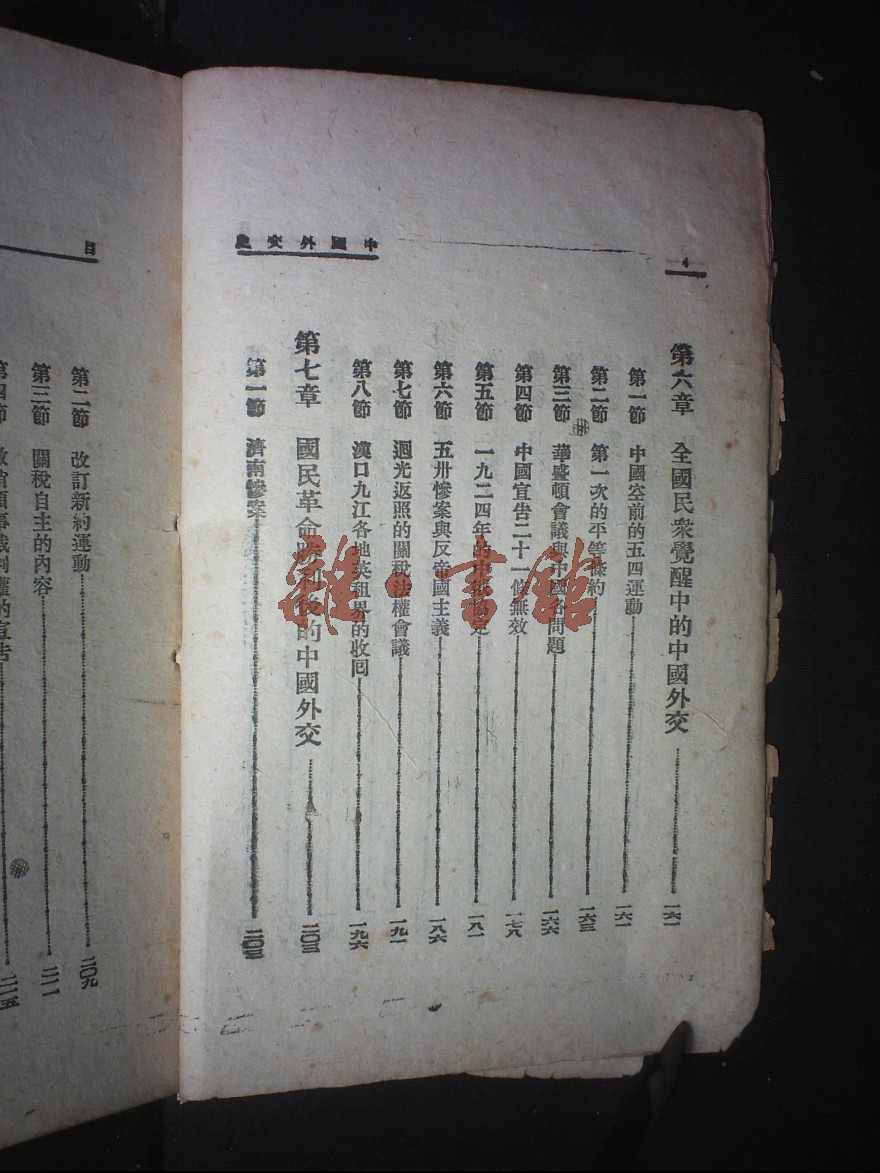 中國外交史
4
第六章 全國民衆覺醒中的中國外交 一六一
第一節 中國空前的五四運動 一六一
第二節 第一次的平等條約 一六三
第三節 華盛頓會議與中國各問題 一六六
第四節 中國宣告二十一條無效 一七八
第五節 一九二四年的中俄協定 一八一
第六節 五卅慘案與反帝國主義 一八六
第七節 迴光返照的關稅法權會議 一九一
第八節 漢口九江各地英租界的收回 一九六
第七章 國民革命勝利後的中國外交 二〇三
第一節 濟南慘案 二〇三
目
第二節 改訂新約運動 二〇九
第三節 關稅自主的內容 二一一
第四節 撤銷領事裁判權的宣告 二一五
雜·書館